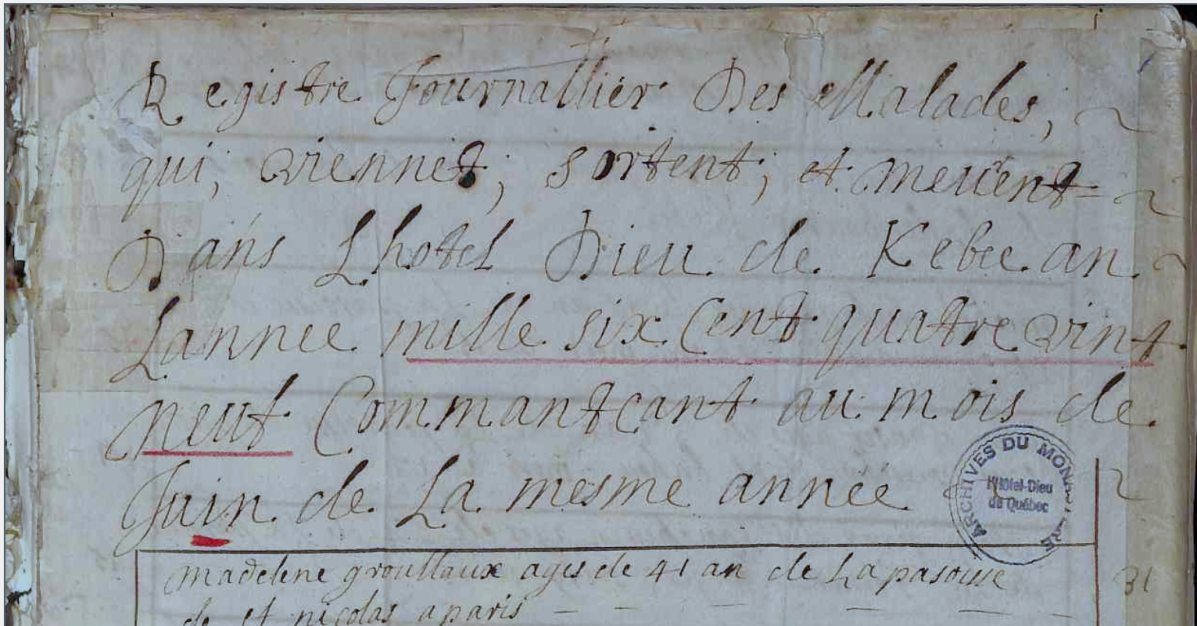 Registre Journallier Des Malades,
qui, viennēt, sortent, et meurent
Dans Lhotel Dieu de Kebec an
Lannee mille six Cent quatre vint
neuf Commantcant au mois de
Juin de La mesme année
ARCHIVES DU MONASTÈRE
l'Hôtel-Dieu
de Québec
madelene groullaux agés de 41 an de La paroisse 31
de st nicolas a paris